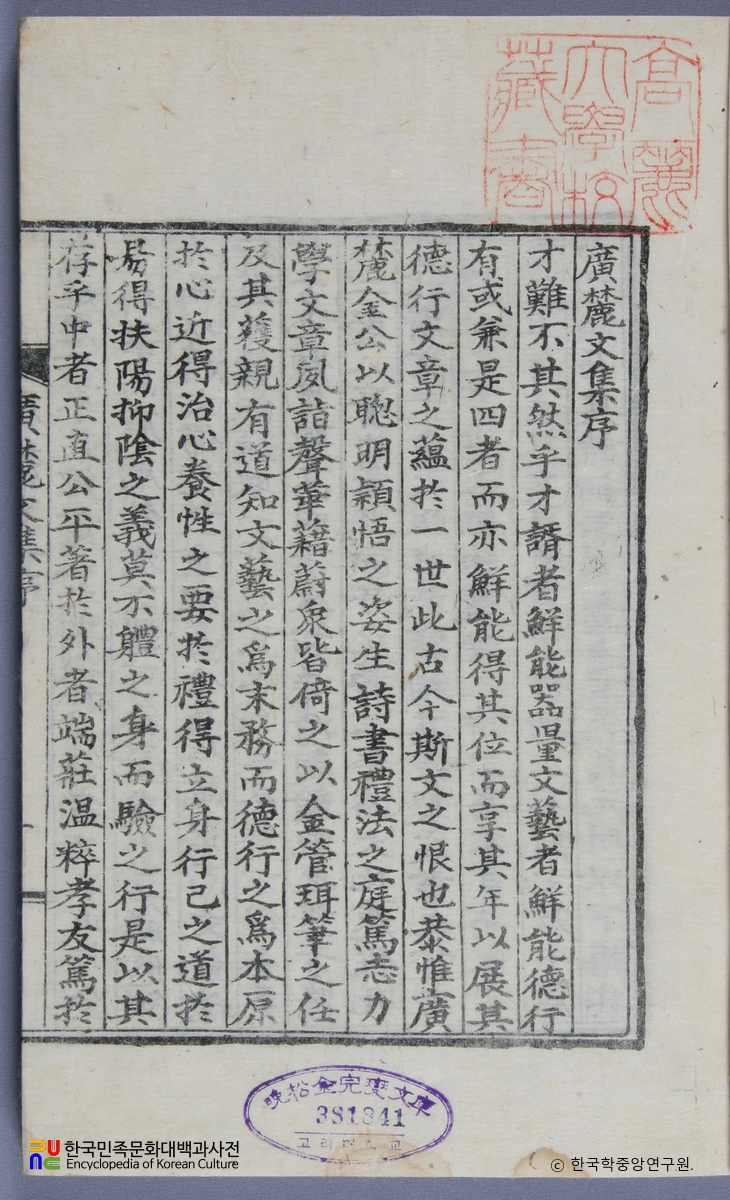 高麗
大學校
藏書
廣麓文集序
才難不其然乎才諝者鮮能器量文藝者鮮能德行
有或兼是四者而亦鮮能得其位而享其年以展其
德行文章之蘊於一世此古今斯文之恨也恭惟廣
麓金公以聰明穎悟之姿生詩書禮法之庭篤志力
學文章夙詣聲華藉蔚衆皆倚之以金管珥筆之任
及其獲親有道知文藝之爲末務而德行之爲本原
於心近得治心養性之要於禮得立身行己之道於
易得扶陽抑陰之義莫不軆之身而驗之行是以其
存乎中者正直公平著於外者端莊溫粹孝友篤於
廣麓文集序
一
晩松金完燮文庫
381841
고려대학교
한국민족문화대백과사전
Encyclopedia of Korean Culture
© 한국학중앙연구원.